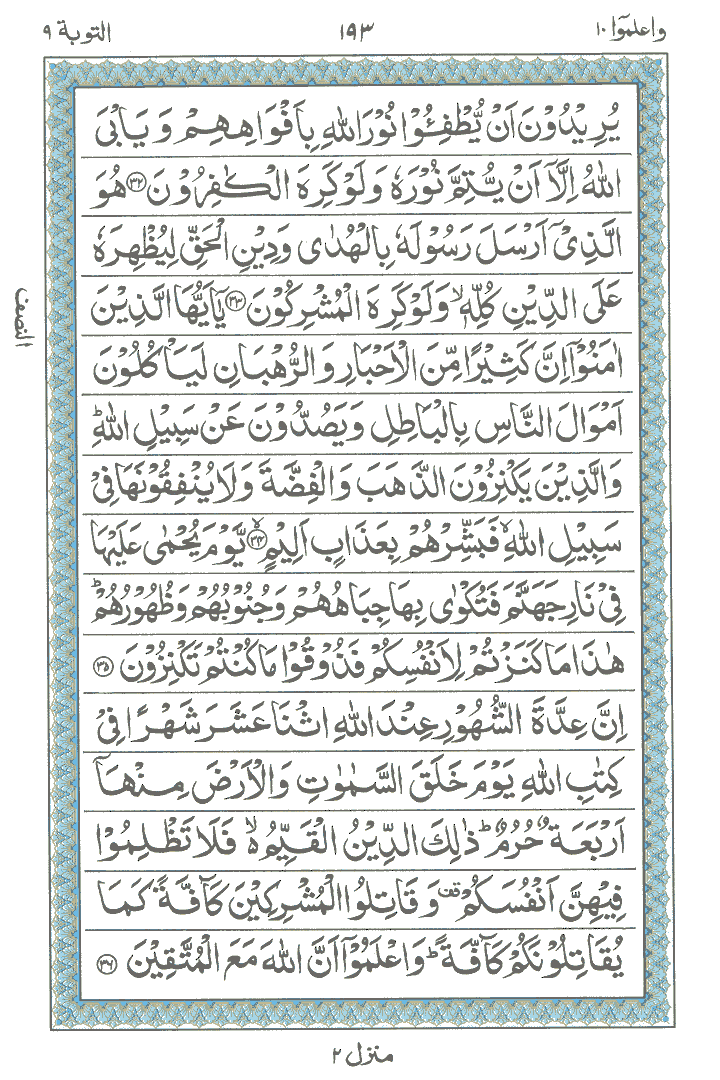 واعلموٓا ١٠
١٩٣
التوبة ٩
يُرِيْدُوْنَ اَنْ يُّطْفِـُٔوْا نُوْرَ اللهِ بِاَفْوَاهِهِمْ وَيَاْبَى
اللهُ اِلَّاۤ اَنْ يُّتِمَّ نُوْرَهٗ وَلَوْ كَرِهَ الْكٰفِرُوْنَ ﴿٣٢﴾ هُوَ
الَّذِيْۤ اَرْسَلَ رَسُوْلَهٗ بِالْهُدٰى وَدِيْنِ الْحَقِّ لِيُظْهِرَهٗ
عَلَى الدِّيْنِ كُلِّهٖۙ وَلَوْ كَرِهَ الْمُشْرِكُوْنَ ﴿٣٣﴾ يٰۤاَيُّهَا الَّذِيْنَ
اٰمَنُوْۤا اِنَّ كَثِيْرًا مِّنَ الْاَحْبَارِ وَالرُّهْبَانِ لَيَاْكُلُوْنَ
اَمْوَالَ النَّاسِ بِالْبَاطِلِ وَيَصُدُّوْنَ عَنْ سَبِيْلِ اللهِؕ
وَالَّذِيْنَ يَكْنِزُوْنَ الذَّهَبَ وَالْفِضَّةَ وَلَا يُنْفِقُوْنَهَا فِيْ
سَبِيْلِ اللهِۙ فَبَشِّرْهُمْ بِعَذَابٍ اَلِيْمٍۙ ﴿٣٤﴾ يَّوْمَ يُحْمٰى عَلَيْهَا
فِيْ نَارِ جَهَنَّمَ فَتُكْوٰى بِهَا جِبَاهُهُمْ وَجُنُوْبُهُمْ وَظُهُوْرُهُمْؕ
هٰذَا مَا كَنَزْتُمْ لِاَنْفُسِكُمْ فَذُوْقُوْا مَا كُنْتُمْ تَكْنِزُوْنَ ﴿٣٥﴾
اِنَّ عِدَّةَ الشُّهُوْرِ عِنْدَ اللهِ اثْنَا عَشَرَ شَهْرًا فِيْ
كِتٰبِ اللهِ يَوْمَ خَلَقَ السَّمٰوٰتِ وَالْاَرْضَ مِنْهَاۤ
اَرْبَعَةٌ حُرُمٌؕ ذٰلِكَ الدِّيْنُ الْقَيِّمُۙ فَلَا تَظْلِمُوْا
فِيْهِنَّ اَنْفُسَكُمْ قف وَقَاتِلُوا الْمُشْرِكِيْنَ كَآفَّةً كَمَا
يُقَاتِلُوْنَكُمْ كَآفَّةًؕ وَاعْلَمُوْۤا اَنَّ اللهَ مَعَ الْمُتَّقِيْنَ ﴿٣٦﴾
النصف
منزل ٢